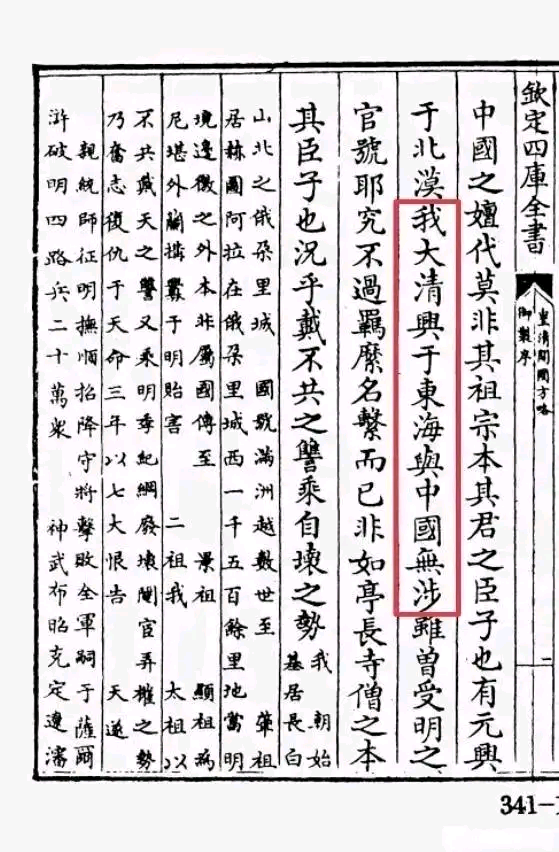 欽定四庫全書
皇清開國方略
御製序
二
中國之嬗代莫非其祖宗本其君之臣子也有元興
于北漠我大清興于東海與中國無涉雖曾受明之
官號耶究不過羈縻名繫而已非如亭長寺僧之本
其臣子也況乎戴不共之讐乘自壞之勢
我 朝始
基居長白
山北之俄朵里城 國號滿洲越數世至 肇祖
居赫圖阿拉在俄朵里城西一千五百餘里地當明
境邊徼之外本非屬國傳至 景祖 顯祖為
尼堪外蘭搆釁于明貽害 二祖我 太祖以
不共戴天之讐又乘明季紀綱廢壞閹官弄權之勢
乃奮志復仇于天命三年以七大恨告 天遂
親統師征明撫順招降守將擊敗全軍嗣于薩爾
滸破明四路兵二十萬衆 神武布昭克定遼瀋
341-1